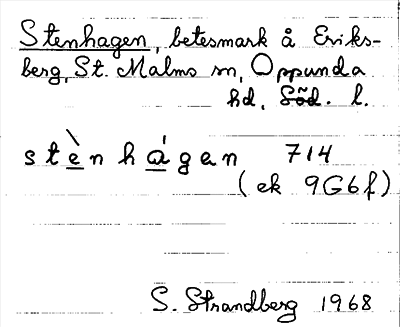 Stenhagen, betesmark å Eriks-
berg, St. Malms sn, Oppunda
hd, Söd. l.
stè̲n há̲gen 714
(ek 9G6f)
S. Strandberg 1968